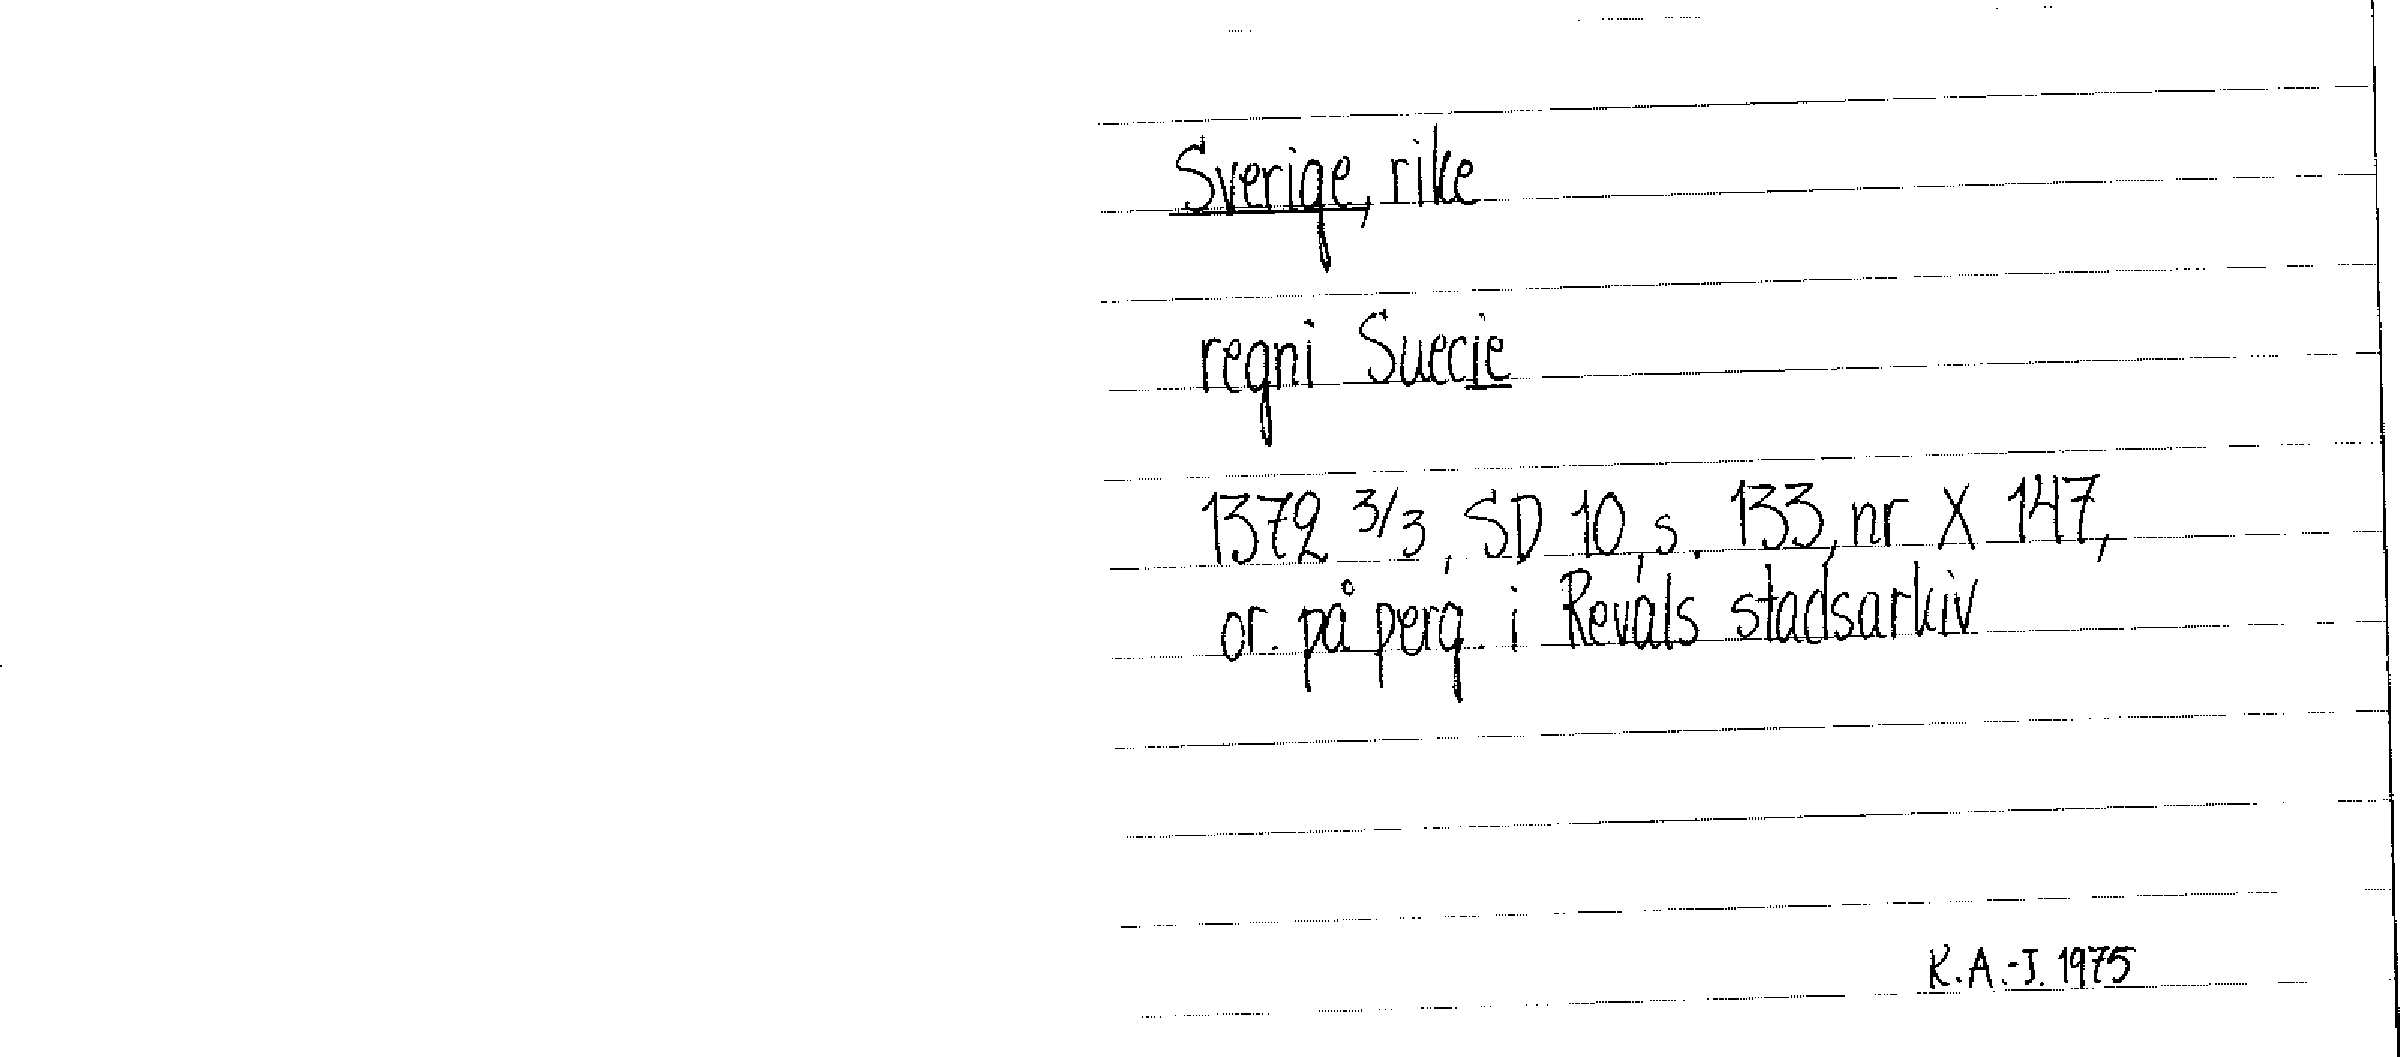 Sverige, rike
regni Suecie
1372 3/3, SD 10, s. 133, nr X 147,
or. på perg. i Revals stadsarkiv
K.A.-J. 1975